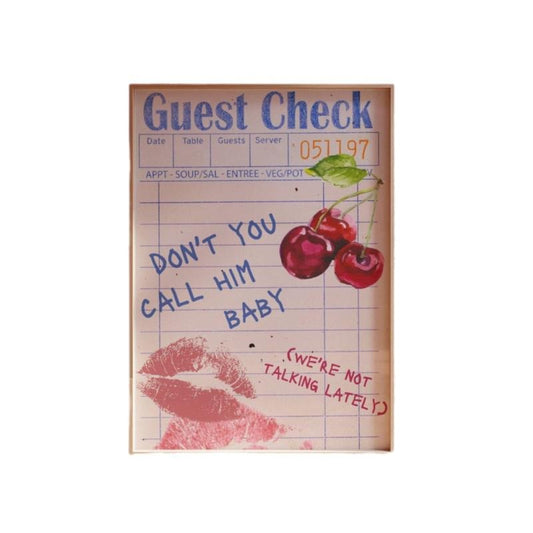 Guest Check
Date Table Guests Server
051197
APPT - SOUP/SAL - ENTREE - VEG/POT
DON'T YOU
CALL HIM
BABY
(WE'RE NOT
TALKING LATELY)